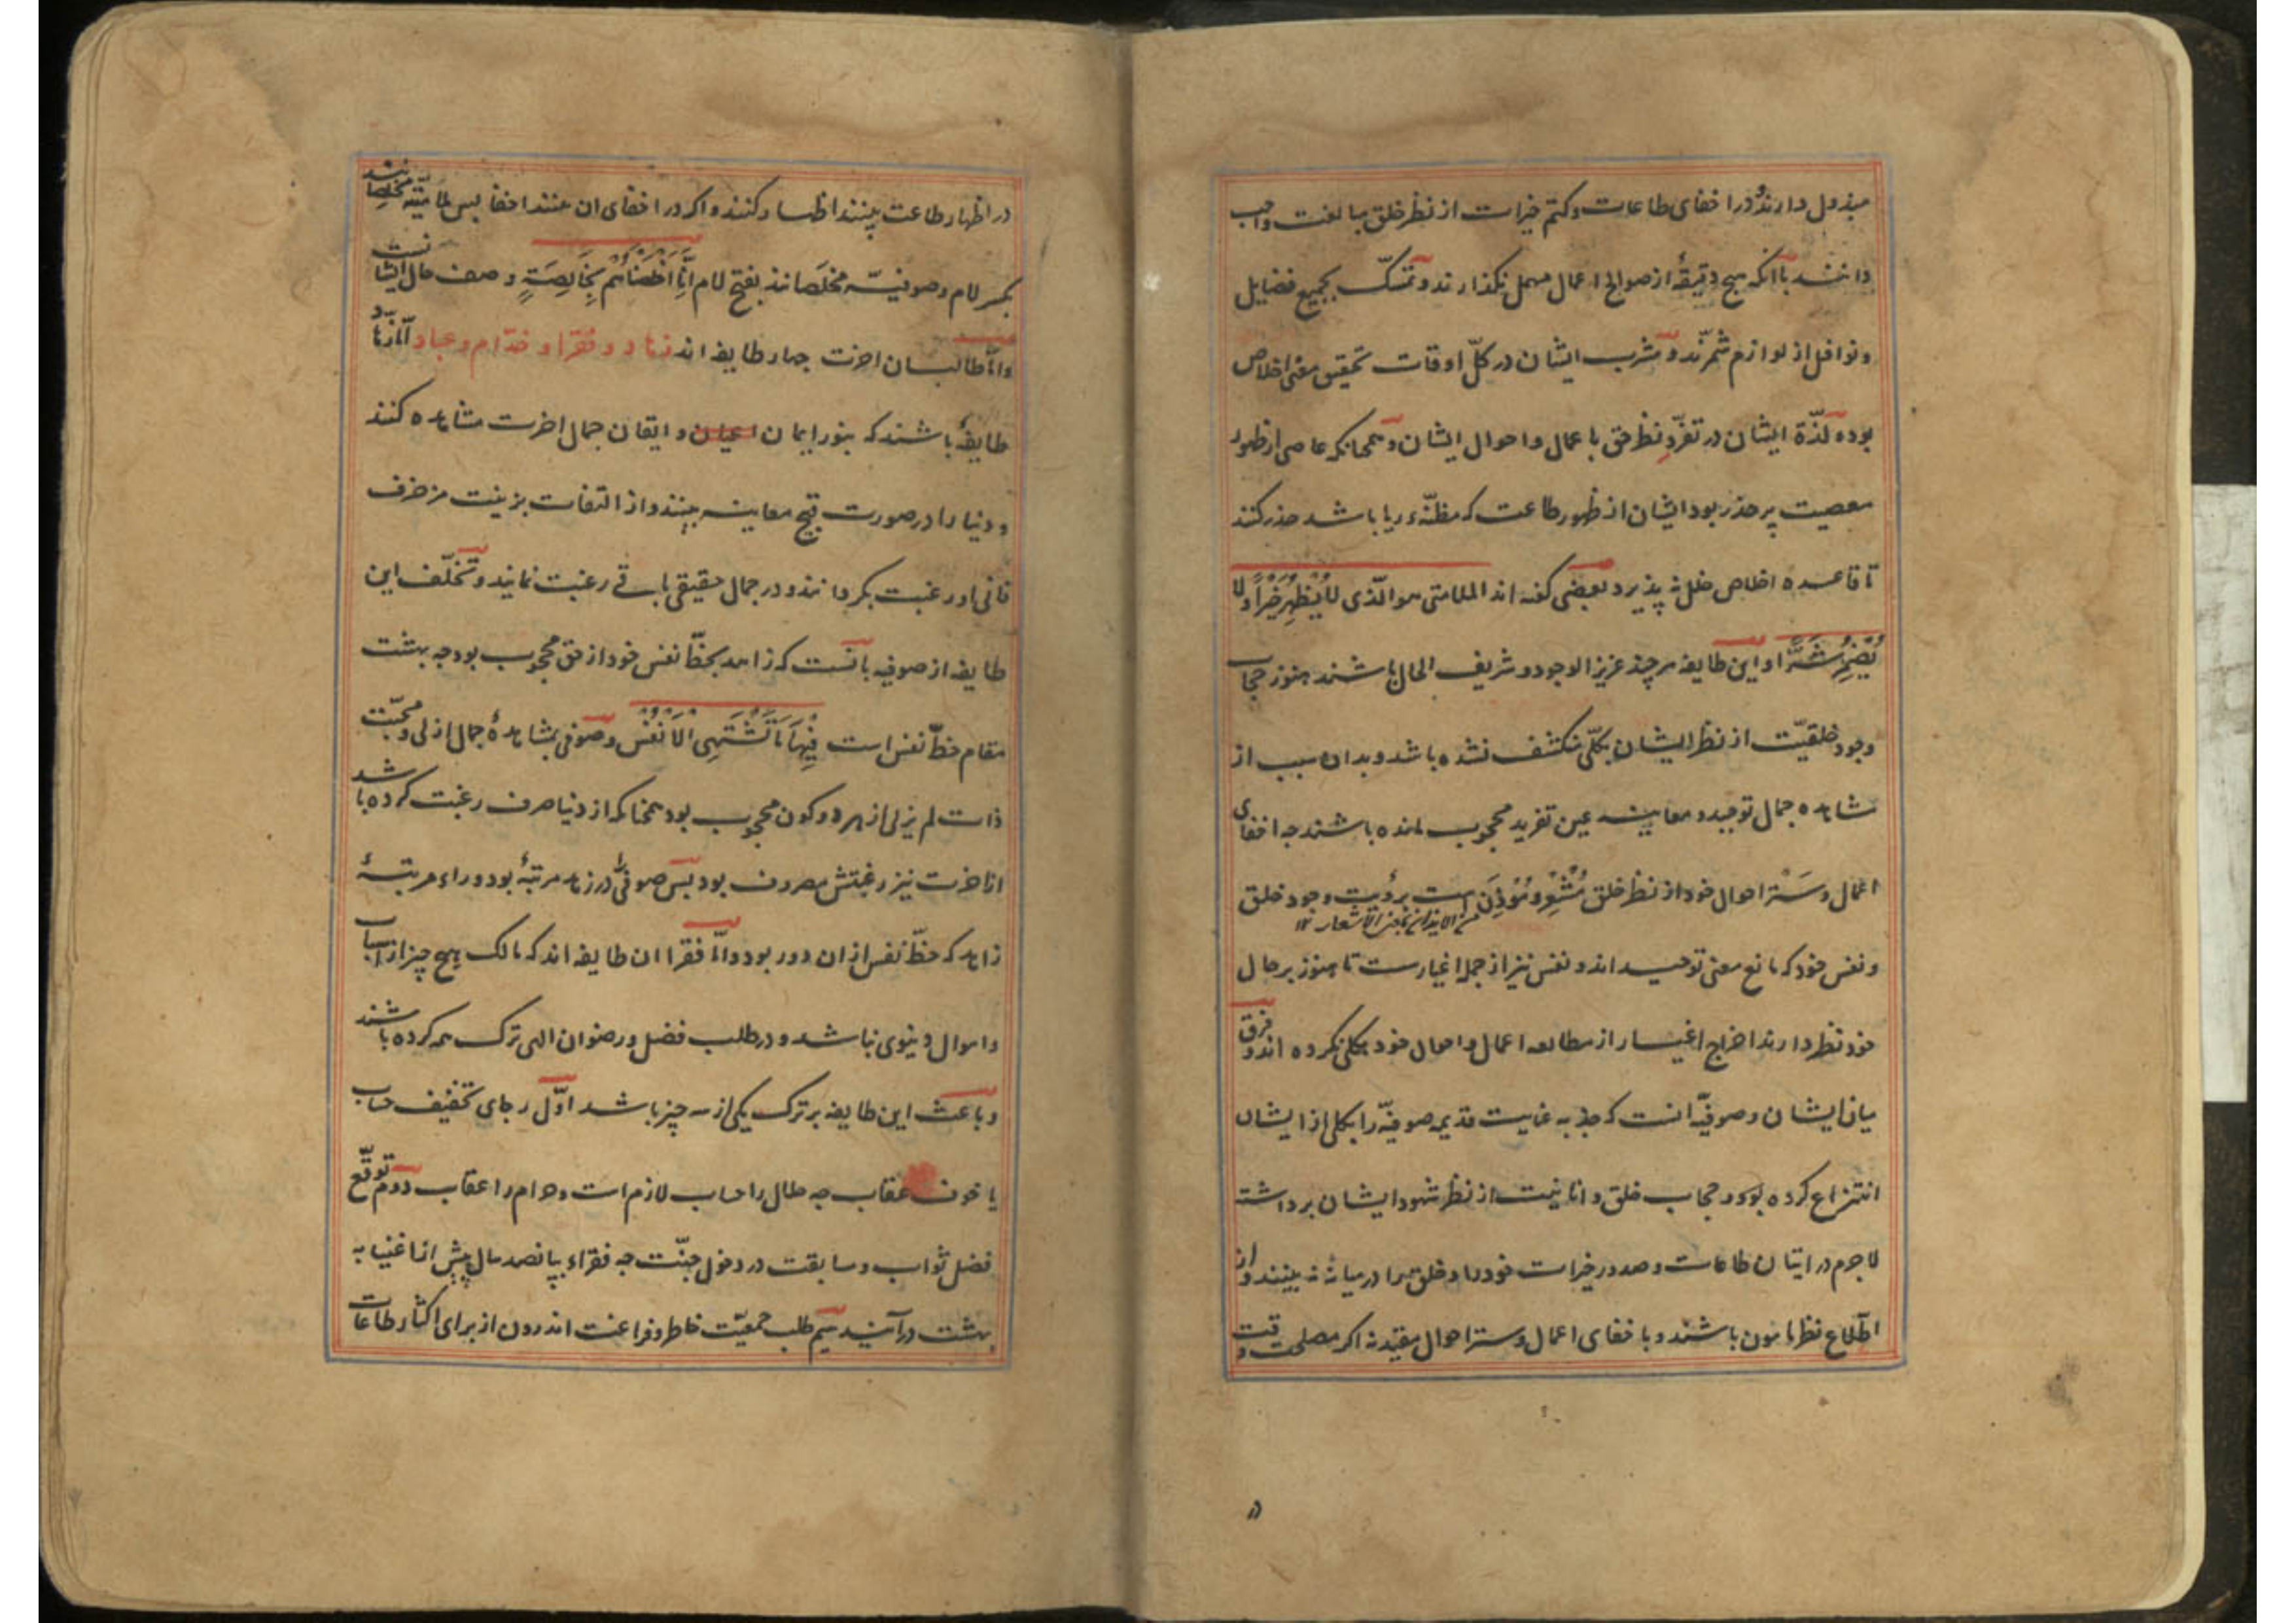 مبذول دارند و در اخفای طاعات و کتم خیرات از نظر خلق مبالغت واجب
دانند با آنکه هیچ دقیقهٔ از صوالح اعمال مهمل نگذارند و تمسّک بجمیع فضایل
و نوافل از لوازم شمرند و مشرب ایشان در کلّ اوقات تحقیق معنی اخلاص
بوده لذّة ایشان در تفرّد نظر حق باعمال و احوال ایشان و همچنانکه عاصی از ظهور
معصیت پر حذر بود ایشان از ظهور طاعت که مظنّهٔ ریا باشد حذر کنند
تا قاعده اخلاص خلل نه پذیرد و بعضی گفته اند الملامتی هو الّذی لا یُظْهِرُ خَیْراً و لا
یُضْمِرُ شَرًّا و این طایفه هر چند عزیز الوجود و شریف الحال باشند هنوز حجاب
وجود خلقیّت از نظر ایشان بکلّی منکشف نشده باشد و بدان سبب از
مشاهده جمال توحید و معاینه عین تفرید محجوب مانده باشند چه اخفای
اعمال و سَتر احوال خود از نظر خلق مُشْعِر و مُؤْذِن است برؤیت وجود خلق
من الایذان بمعنی الاشعار ۱۲
و نفس خود که مانع معنی توحید اند و نفس نیز از جمله اغیارست تا هنوز بر حال
خود نظر دارند اخراج اغیار از مطالعه اعمال و احوال خود بکلی نکرده اند و فرق
میان ایشان و صوفیّه آنست که جذبه عنایت قدیمه صوفیّه را بکلی از ایشان
انتزاع کرده بود و حجاب خلق و انانیت از نظر شهود ایشان برداشته
لاجرم در اتیان طاعات و صدور خیرات خود را و خلق را در میانه نه بینند و از
اطّلاع نظر مامون باشند و باخفای اعمال و ستر احوال مقیّد نه اگر مصلحت وقت
در اظهار طاعت بینند اظهار کنند و اگر در اخفای ان بینند اخفا پس ملامتیّه مخلِصانند
بکسر لام و صوفیّه مخلَصانند بفتح لام اِنَّا اَخْلَصْنَاهُمْ بِخَالِصَةٍ وصف حال ایشانست
و امّا طالبان اخرت چهار طایفه اند زهاد و فقرا و خدّام و عباد امّا زهّاد
طایفهٔ باشند که بنور ایمان اعیان و ایقان جمال اخرت مشاهده کنند
و دنیا را در صورت قبح معاینه بینند و از التفات بزینت مزخرف
فانی او رغبت بگردانند و در جمال حقیقی باقی رغبت نمایند و تخلّف این
طایفه از صوفیه بانست که زاهد بحظّ نفس خود از حق محجوب بود چه بهشت
مقام حظّ نفس است فِیْهَا مَا تَشْتَهِی الْاَنْفُسُ و صوفی بمشاهدهٔ جمال ازلی و محبّت
ذات لم یزلی از هر دو کون محجوب بود همچنانکه از دنیا صرف رغبت کرده باشد
از اخرت نیز رغبتش مصروف بود پس صوفی را در زهد مرتبهٔ بود وراء مرتبهٔ
زاهد که حظّ نفس ازان دور بود و امّا فقرا ان طایفه اند که مالک هیچ چیز از اسباب
و اموال دنیوی نباشد و در طلب فضل و رضوان الهی ترک همه کرده باشند
و باعث این طایفه بر ترک یکی از سه چیز باشد اوّل رجای تخفیف حساب
یا خوف عقاب چه حلال را حساب لازم است و حرام را عقاب دوم توقّع
فضل ثواب و مسابقت در دخول جنّت چه فقراء بپانصد سال پیش از اغنیا به
بهشت درآیند سیم طلب جمعیّت خاطر و فراغت اندرون از برای اکثار طاعات